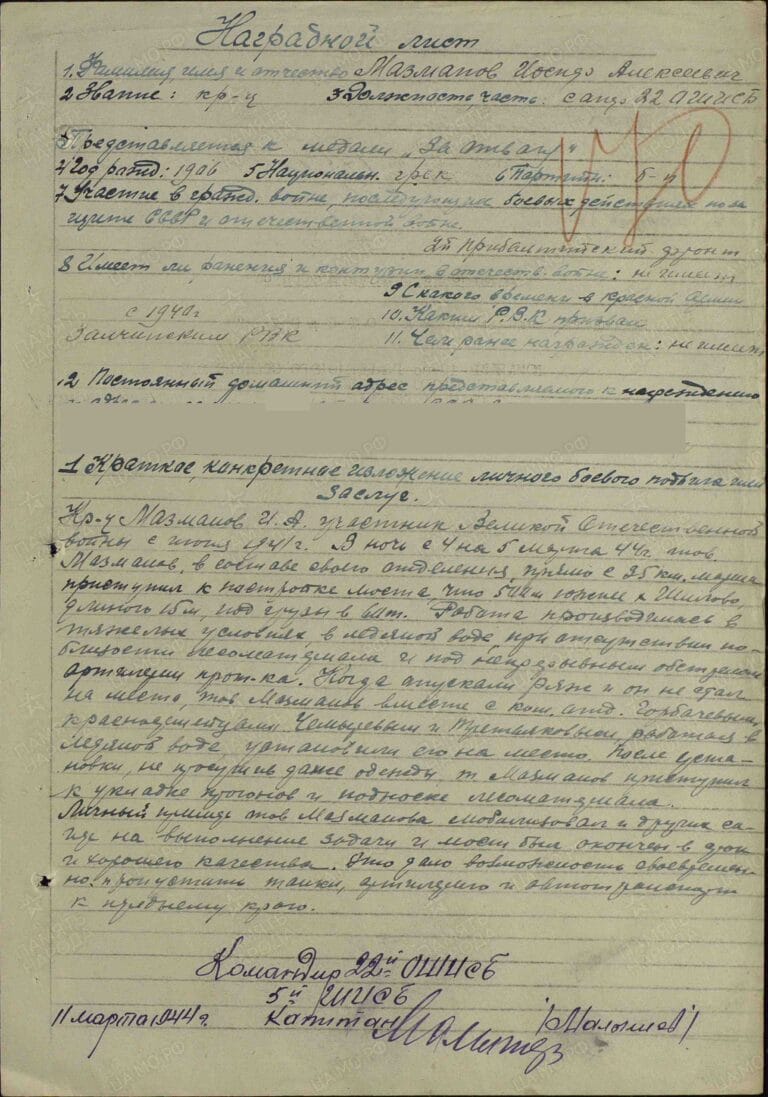 Наградной лист
1. Фамилия, имя и отчество Мазманов Иосиф Алексеевич
2 Звание: кр-ц 3 Должность, часть: сапер 22 ОШИСБ
Представляется к медали "За отвагу"
170
4 Год рожд: 1906 5 Национальн. грек 6 Партийн: б-п
7 Участие в гражд. войне, последующих боевых действиях по за
щите СССР и отечественной войне.
2й прибалтийский фронт
8 Имеет ли ранения и контузии в отечеств. войне: не имеет
9 С какого времени в красной армии
с 1940г 10. Каким Р.В.К призван
РВК 11. Чем ранее награжден: не имеет
12 Постоянный домашний адрес представляемого к награждению
1 Краткое, конкретное изложение личного боевого подвига или
заслуг.
Кр-ц Мазманов И.А. участник Великой Отечественной
войны с июля 1941г. В ночь с 4 на 5 марта 44г. тов.
Мазманов, в составе своего отделения прямо с 25 км. марша
приступил к постройке моста, что 500м южнее
длиною 15м, под грузы в 60т. Работа производилась в
тяжелых условиях в ледяной воде, при отсутствии по-
близости лесоматериала и под непрерывным обстрелом
артилерии прот-ка. Когда опускали ряж и он не стал
на место, тов Мазманов вместе с ком. отд. Горбачевым,
красноармейцами и Третьяковым, работая в
ледяной воде, установили его на место. После уста-
новки, не просушив даже одежды, т. Мазманов приступил
к укладке прогонов и подноске лесоматериала.
Личный пример тов Мазманова мобилизовал и других са-
пер на выполнение задачи и мост был окончен в срок
и хорошего качества. Это дало возможность своевремен-
но пропустить танки, артилерию и автотранспорт
к переднему краю.
Командир 22й ОШИСБ
5й ШИСБ
11 марта 1944г. Капитан